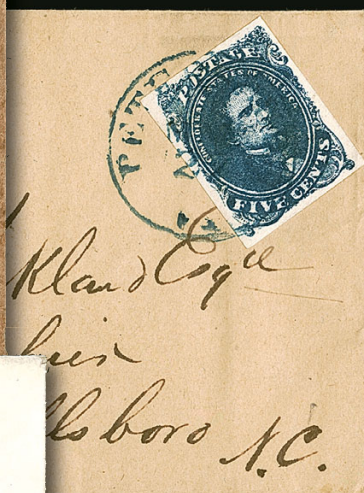 POSTAGE
CONFEDERATE STATES OF AMERICA
FIVE CENTS
PETE
kland Esqre
lsboro N.C.